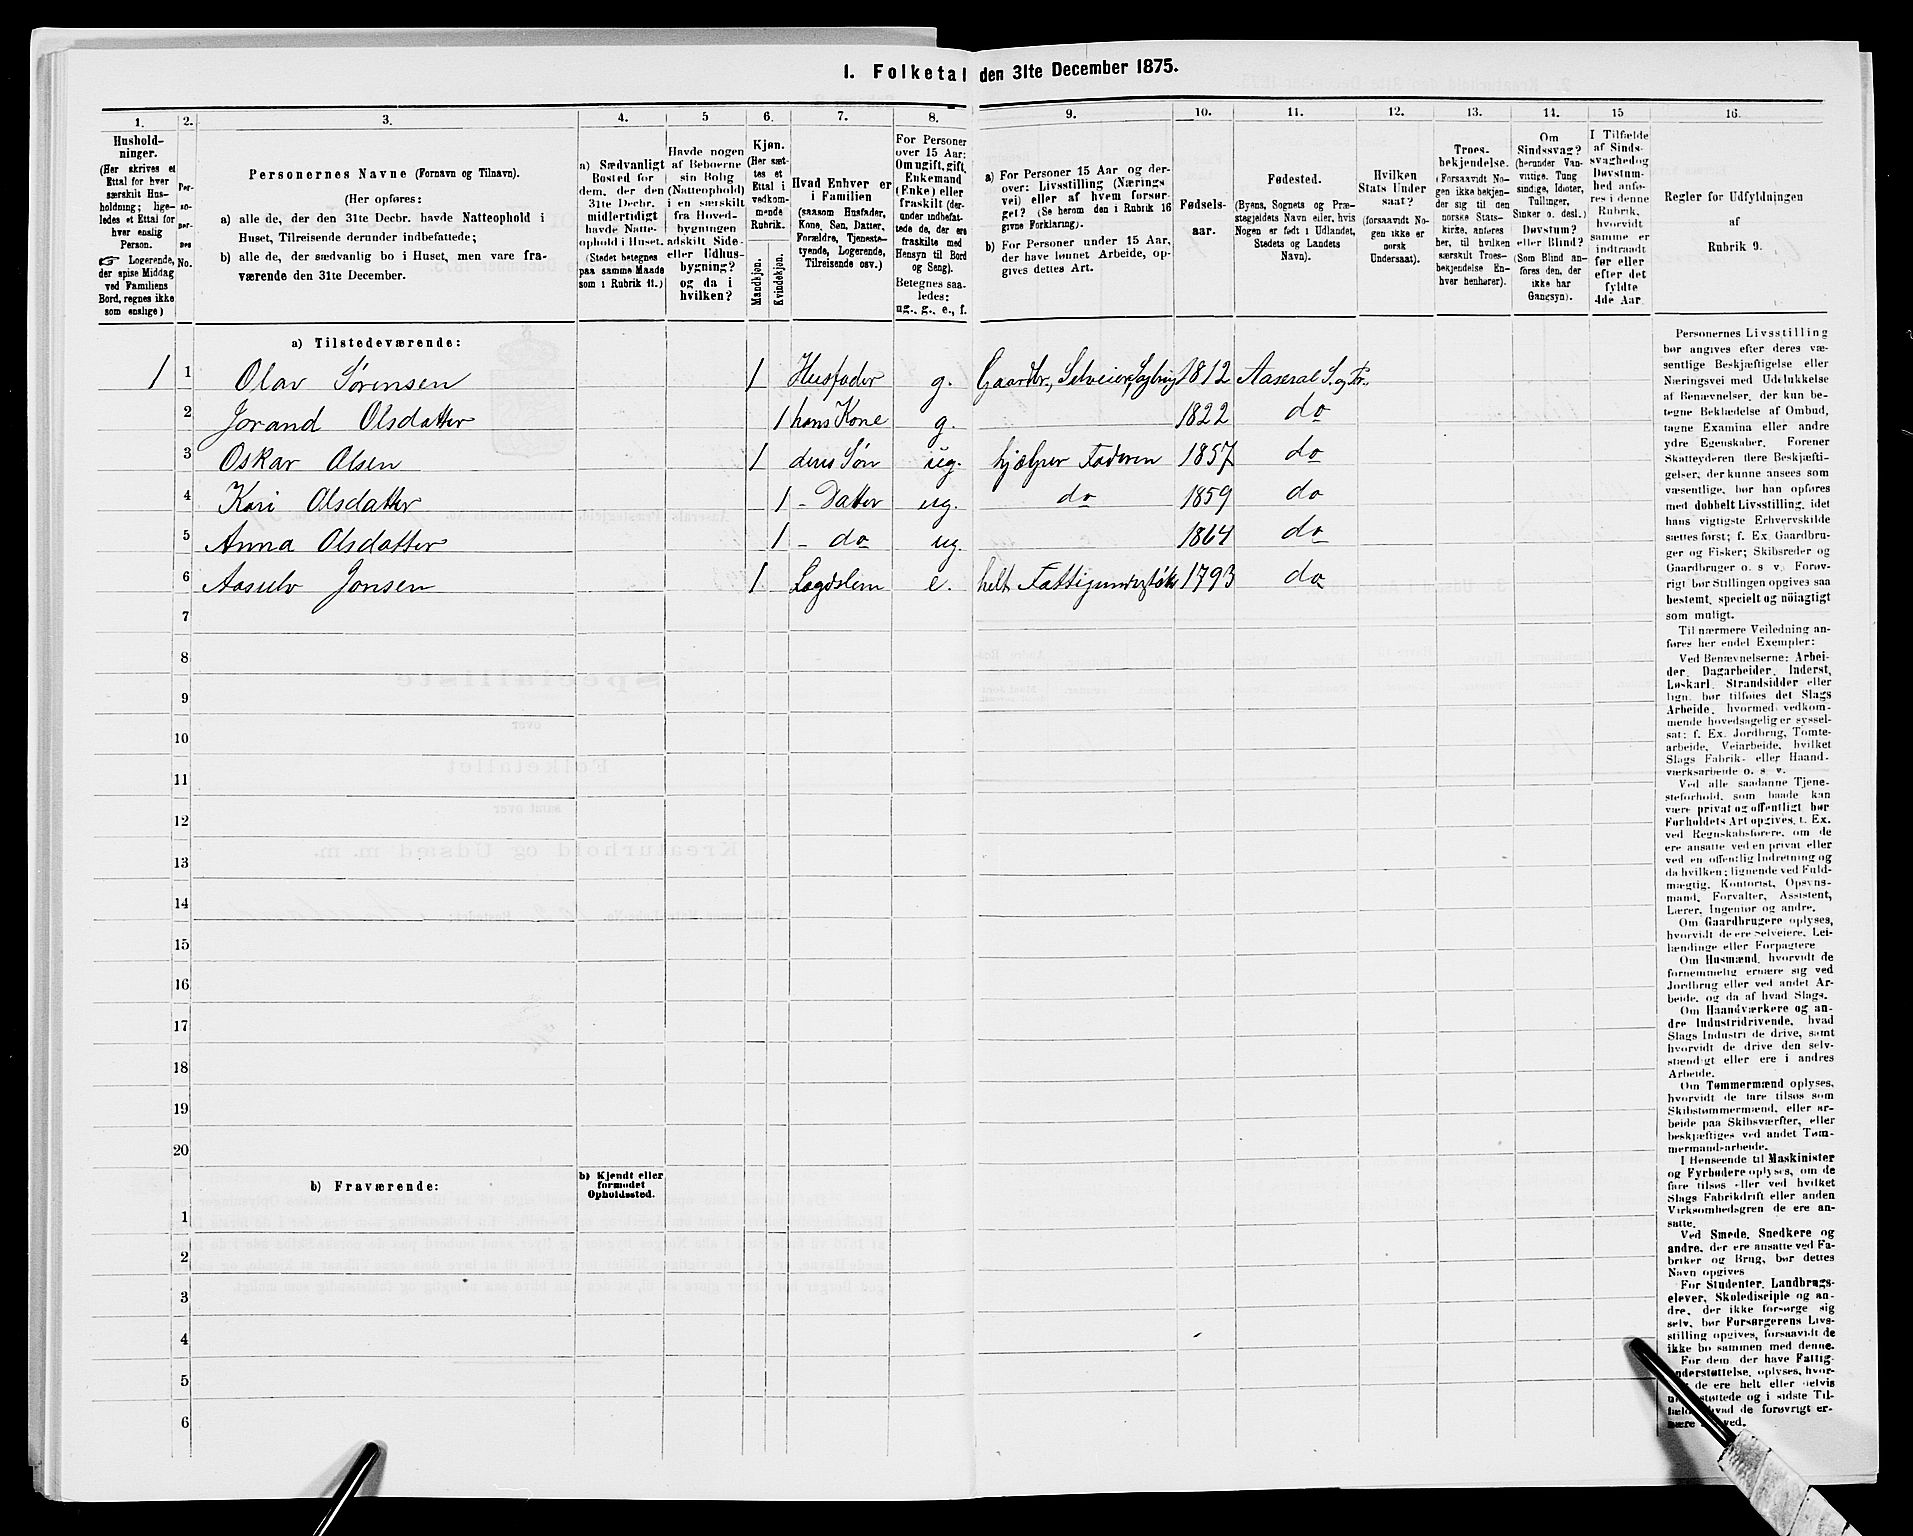 1. Folketal den 31te December 1875.
1. 2. 3. 4. 5 6. 7. 8. 9. 10. 11. 12. 13. 14. 15 16.
Hushold-
ninger.
(Her skrives et
Ettal for hver
særskilt Hus-
holdning; lige-
ledes et Ettal for
hver enslig
Person.
☞ Logerende,
der spise Middag
ved Familiens
Bord, regnes ikke
som enslige)
Per-
so-
ner-
nes
No.
Personernes Navne (Fornavn og Tilnavn).
(Her opføres:
a) alle de, der den 31te Decbr. havde Natteophold i
Huset, Tilreisende derunder indbefattede;
b) alle de, der sædvanlig bo i Huset, men vare fra-
værende den 31te December.
a) Sædvanligt
Bosted for
dem, der den
31te Decbr.
midlertidigt
havde Natte-
ophold i Huset.
(Stedet betegnes
paa samme Maade
som i Rubrik 11.)
Havde nogen
af Beboerne
sin Bolig
(Natteophold)
i en særskilt
fra Hoved-
bygningen
adskilt Side-
eller Udhus-
bygning?
og da i
hvilken?
Kjøn.
(Her sæt-
tes et
Ettal i
vedkom-
mende
Rubrik.
Mandkjøn.
Kvindekjøn.
Hvad Enhver er
i Familien
(saasom Husfader,
Kone, Søn, Datter,
Forældre, Tjeneste-
tyende, Logerende,
Tilreisende osv.)
For Personer
over 15 Aar:
Om ugift, gift,
Enkemand
(Enke) eller
fraskilt (der-
under indbefat-
tede de, der ere
fraskilte med
Hensyn til Bord
og Seng).
Betegnes saa-
ledes:
ug., g., e., f.
a) For Personer 15 Aar og der-
over: Livsstilling (Nærings
vei) eller af hvem forsør-
get? (Se herom den i Rubrik 16
givne Forklaring).
b) For Personer under 15 Aar,
der have lønnet Arbeide, op-
gives dettes Art.
Fødsels-
aar.
Fødested.
(Byens, Sognets og Præ-
stegjeldets Navn eller, hvis
Nogen er født i Udlandet,
Stedets og Landets
Navn).
Hvilken
Stats Under
saat?
(forsaavidt No-
gen ikke er
norsk
Undersaat).
Troes-
bekjendelse.
(Forsaavidt No-
gen ikke bekjen-
der sig til den
norske Stats-
kirke, anføres
her, til hvilken
særskilt Troes-
bekjendelse En-
hver henhører).
Om
Sindssvag?
(herunder Van-
vittige, Tung
sindige, Idioter,
Tullinger,
Sinker o. desl.)
Døvstum?
eller Blind?
(Som Blind an-
føres den, der
ikke har
Gangsyn).
I Tilfælde
af Sinds-
svaghed og
Døvstum-
hed anfø-
res i denne
Rubrik,
hvorvidt
samme er
indtraadt
før eller
efter det
fyldte
4de Aar.
Regler for Udfyldningen
af
Rubrik 9.
a) Tilstedeværende:
1 1 Olav Sørensen 1 Husfader g. Gaardbr., Selveier, 1812 Aaseral S. og Pr.
2 Jorand Olsdatter 1 hans Kone g. 1822 do
3 Oskar Olsen 1 deres Søn ug. hjælper Faderen 1857 do
4 Kari Olsdatter 1 - Datter ug. do 1859 do
5 Anna Olsdatter 1 - do ug. 1864 do
6 Aasulv Jonsen 1 Lægdslem e. helt Fattigunderstøt. 1793 do
7
8
9
10
11
12
13
14
15
16
17
18
19
20
b) Fraværende:
b) Kjendt eller
formodet
Opholdssted.
1
2
3
4
5
6
Personernes Livsstilling
bør angives efter deres væ-
sentlige Beskjæftigelse eller
Næringsvei med Udelukkelse
af Benævnelser, der kun be-
tegne Beklædelse af Ombud,
tagne Examina eller andre
ydre Egenskaber. Forener
Skatteyderen flere Beskjæfti-
gelser, der kunne ansees som
væsentlige, bør han opføres
med dobbelt Livsstilling, idet
hans vigtigste Erhvervskilde
sættes først; f. Ex. Gaardbru-
ger og Fisker; Skibsreder og
Gaardbruger o. s v. Forøv-
rigt bør Stillingen opgives saa
bestemt, specielt og nöiagtigt
som muligt.
Til nærmere Veiledning an-
føres her endel Exempler:
Ved Benævnelserne: Arbei-
der, Dagarbeider, Inderst,
Løskarl, Strandsidder eller
lign. bør tilføies det Slags
Arbeide, hvormed vedkom-
mende hovedsagelig er syssel-
sat; f. Ex. Jordbrug, Tomte-
arbeide, Veiarbeide, hvilket
Slags Fabrik- eller Haand-
værksarbeide o. s v.
Ved alle saadanne Tjene-
steforhold, som baade kan
være privat og offentligt bør
Forholdets Art opgives, t. Ex.
ved Regnskabsførere, om de
ere ansatte ved en privat eller
ved en offentlig Indretning og
da hvilken; lignende ved Fuld-
mægtig, Kontorist, Opsyns-
mand, Forvalter, Assistent,
Lærer, Ingeniør og andre.
Om Gaardbrugere oplyses,
hvorvidt de ere Selveiere, Lei-
lændinge eller Forpagtere
Om Husmænd, hvorvidt de
fornemmelig ernære sig ved
Jordbrug eller ved andet Ar-
beide, og da af hvad Slags.
Om Haandværkere og an-
dre Industridrivende, hvad
Slags Industri de drive, samt
hvorvidt de drive den selv-
stændigt eller ere i andres
Arbeide.
Om Tømmermænd oplyses,
hvorvidt de fare tilsøs som
Skibstømmermænd, eller ar-
beide paa Skibsværfter, eller
beskjæftiges ved andet Tøm-
mermand-arbeide.
I Henseende til Maskinister
og Fyrbødere oplyses, om de
fare tilsøs eller ved hvilket
Slags Fabrikdrift eller anden
Virksomhedsgren de ere an-
satte.
Ved Smede, Snedkere og
andre, der ere ansatte ved Fa-
briker og Brug, bør dettes
Navn opgives
For Studenter, Landbrugs-
elever, Skoledisciple og an-
dre, der ikke forsørge sig
selv, bør Forsørgerens Livs-
stilling opgives, forsaavidt de
ikke bo sammen med denne.
For dem, der have Fattig-
understøttelse, oplyses, hvor-
de ere helt eller delvis
støttede og i sidste Til-
hvad de forøvrigt er-
nære ved.